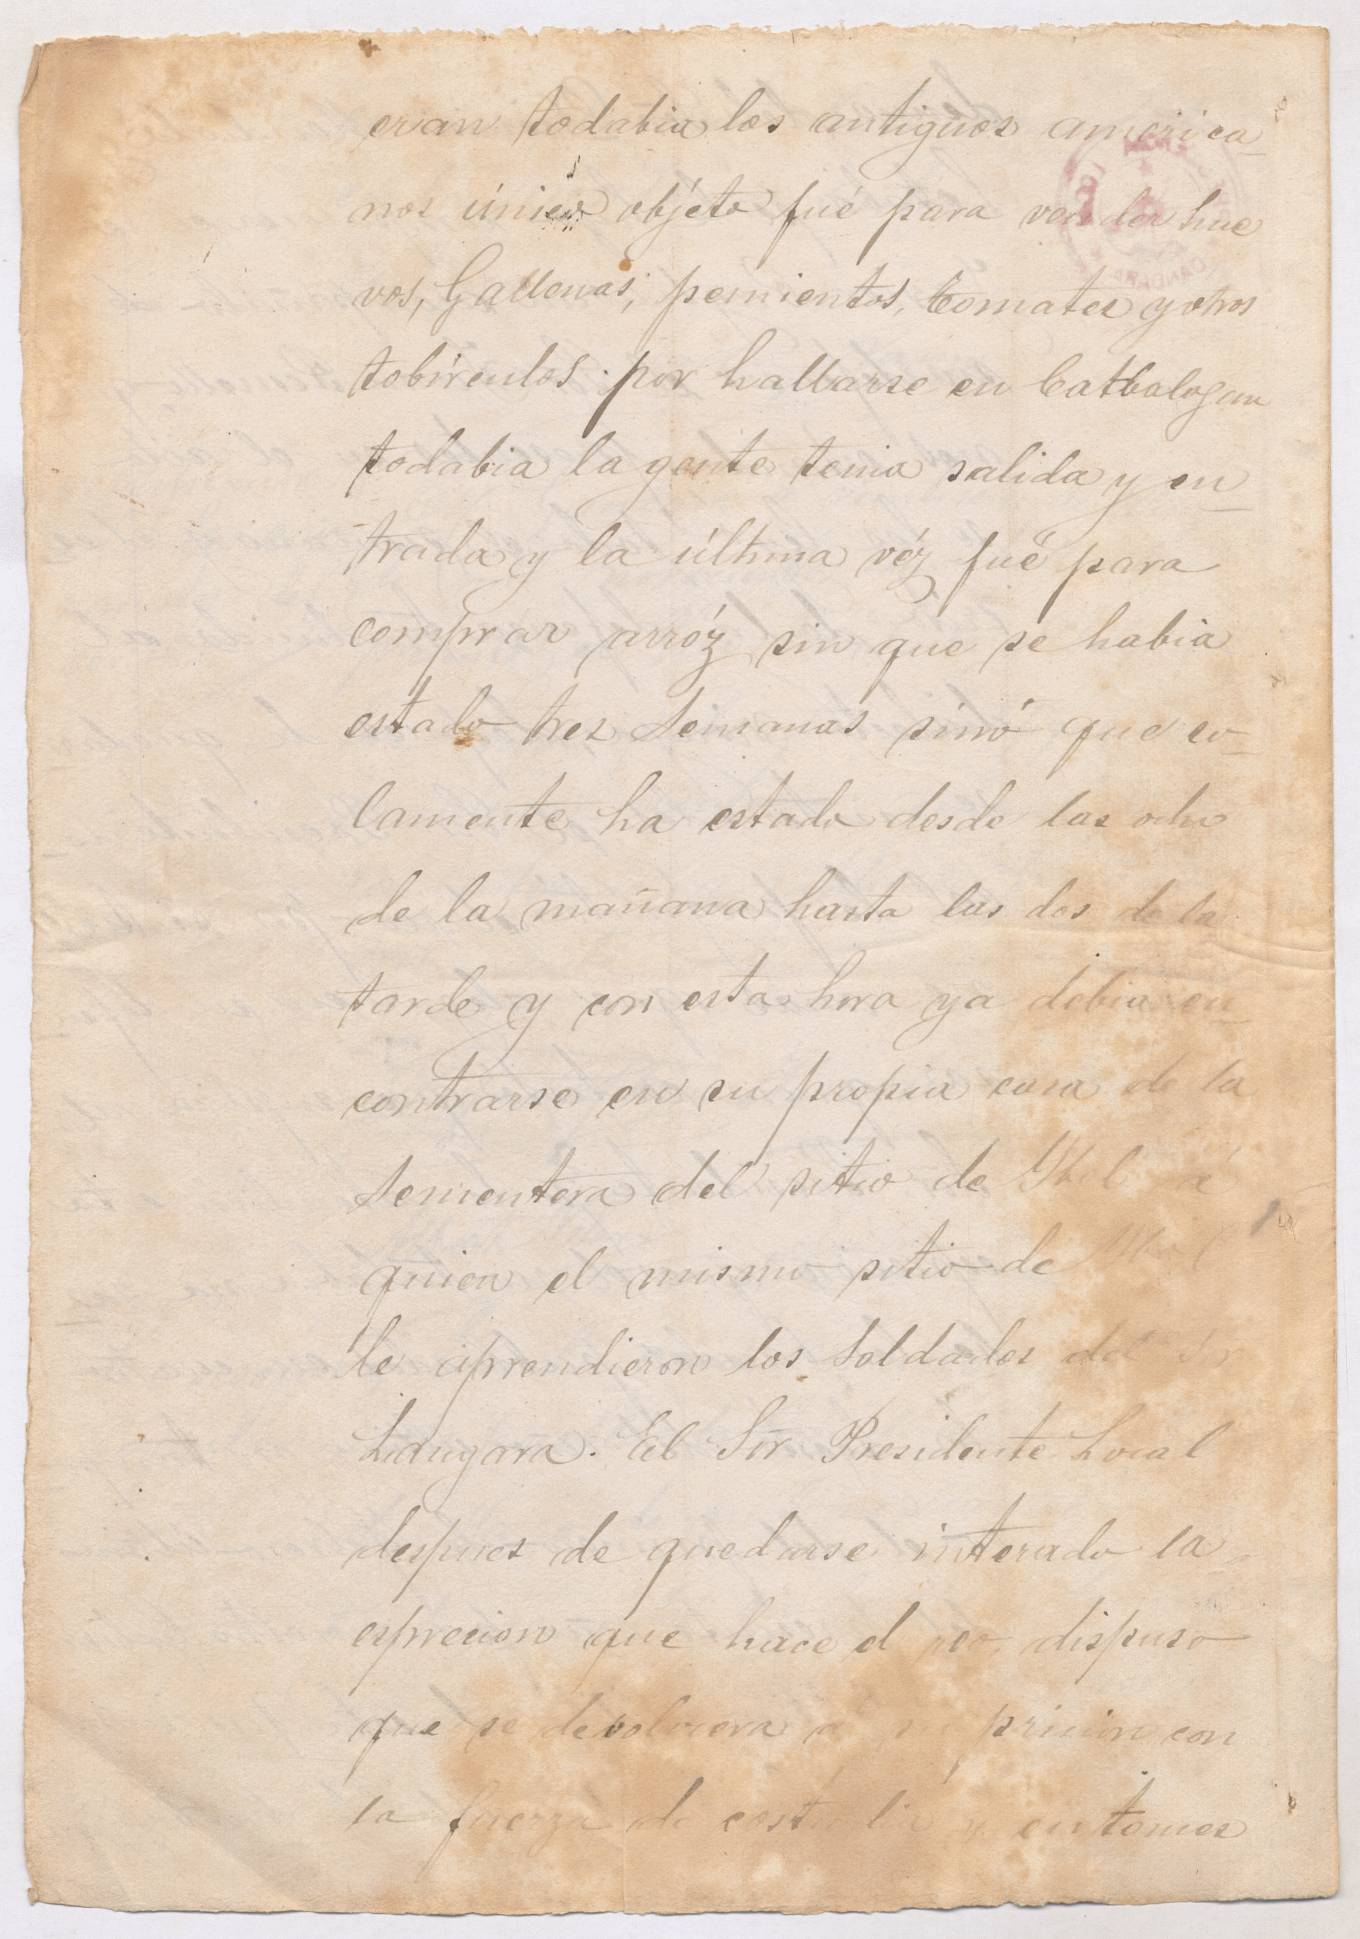 eran todabia los antiguos america-
nos único objéto fué para vender hue
vos, Gallenas, pemientos, tomates y otros
tobírculos por hallarse en Catbalogan
todabia la gente tenia salida y en-
trada y la última véz fué para
comprar arróz sin que se habia
estado tres Semanas sinó que so-
lamente ha estado desde las ocho
de la mañana hasta las dos de la
tarde y con esta hora ya debia en-
contrarse en su propia casa de la
Sementera del sitio de á
quien el mismo sitio de
le aprendieron los Soldados del Sr
Laugara. El Sor Presidente Local
despues de quedarse interado la
esprecion que hace el reo, dispuso
que se devolviera á su pricion con
la fuerza de costodia y en tomos